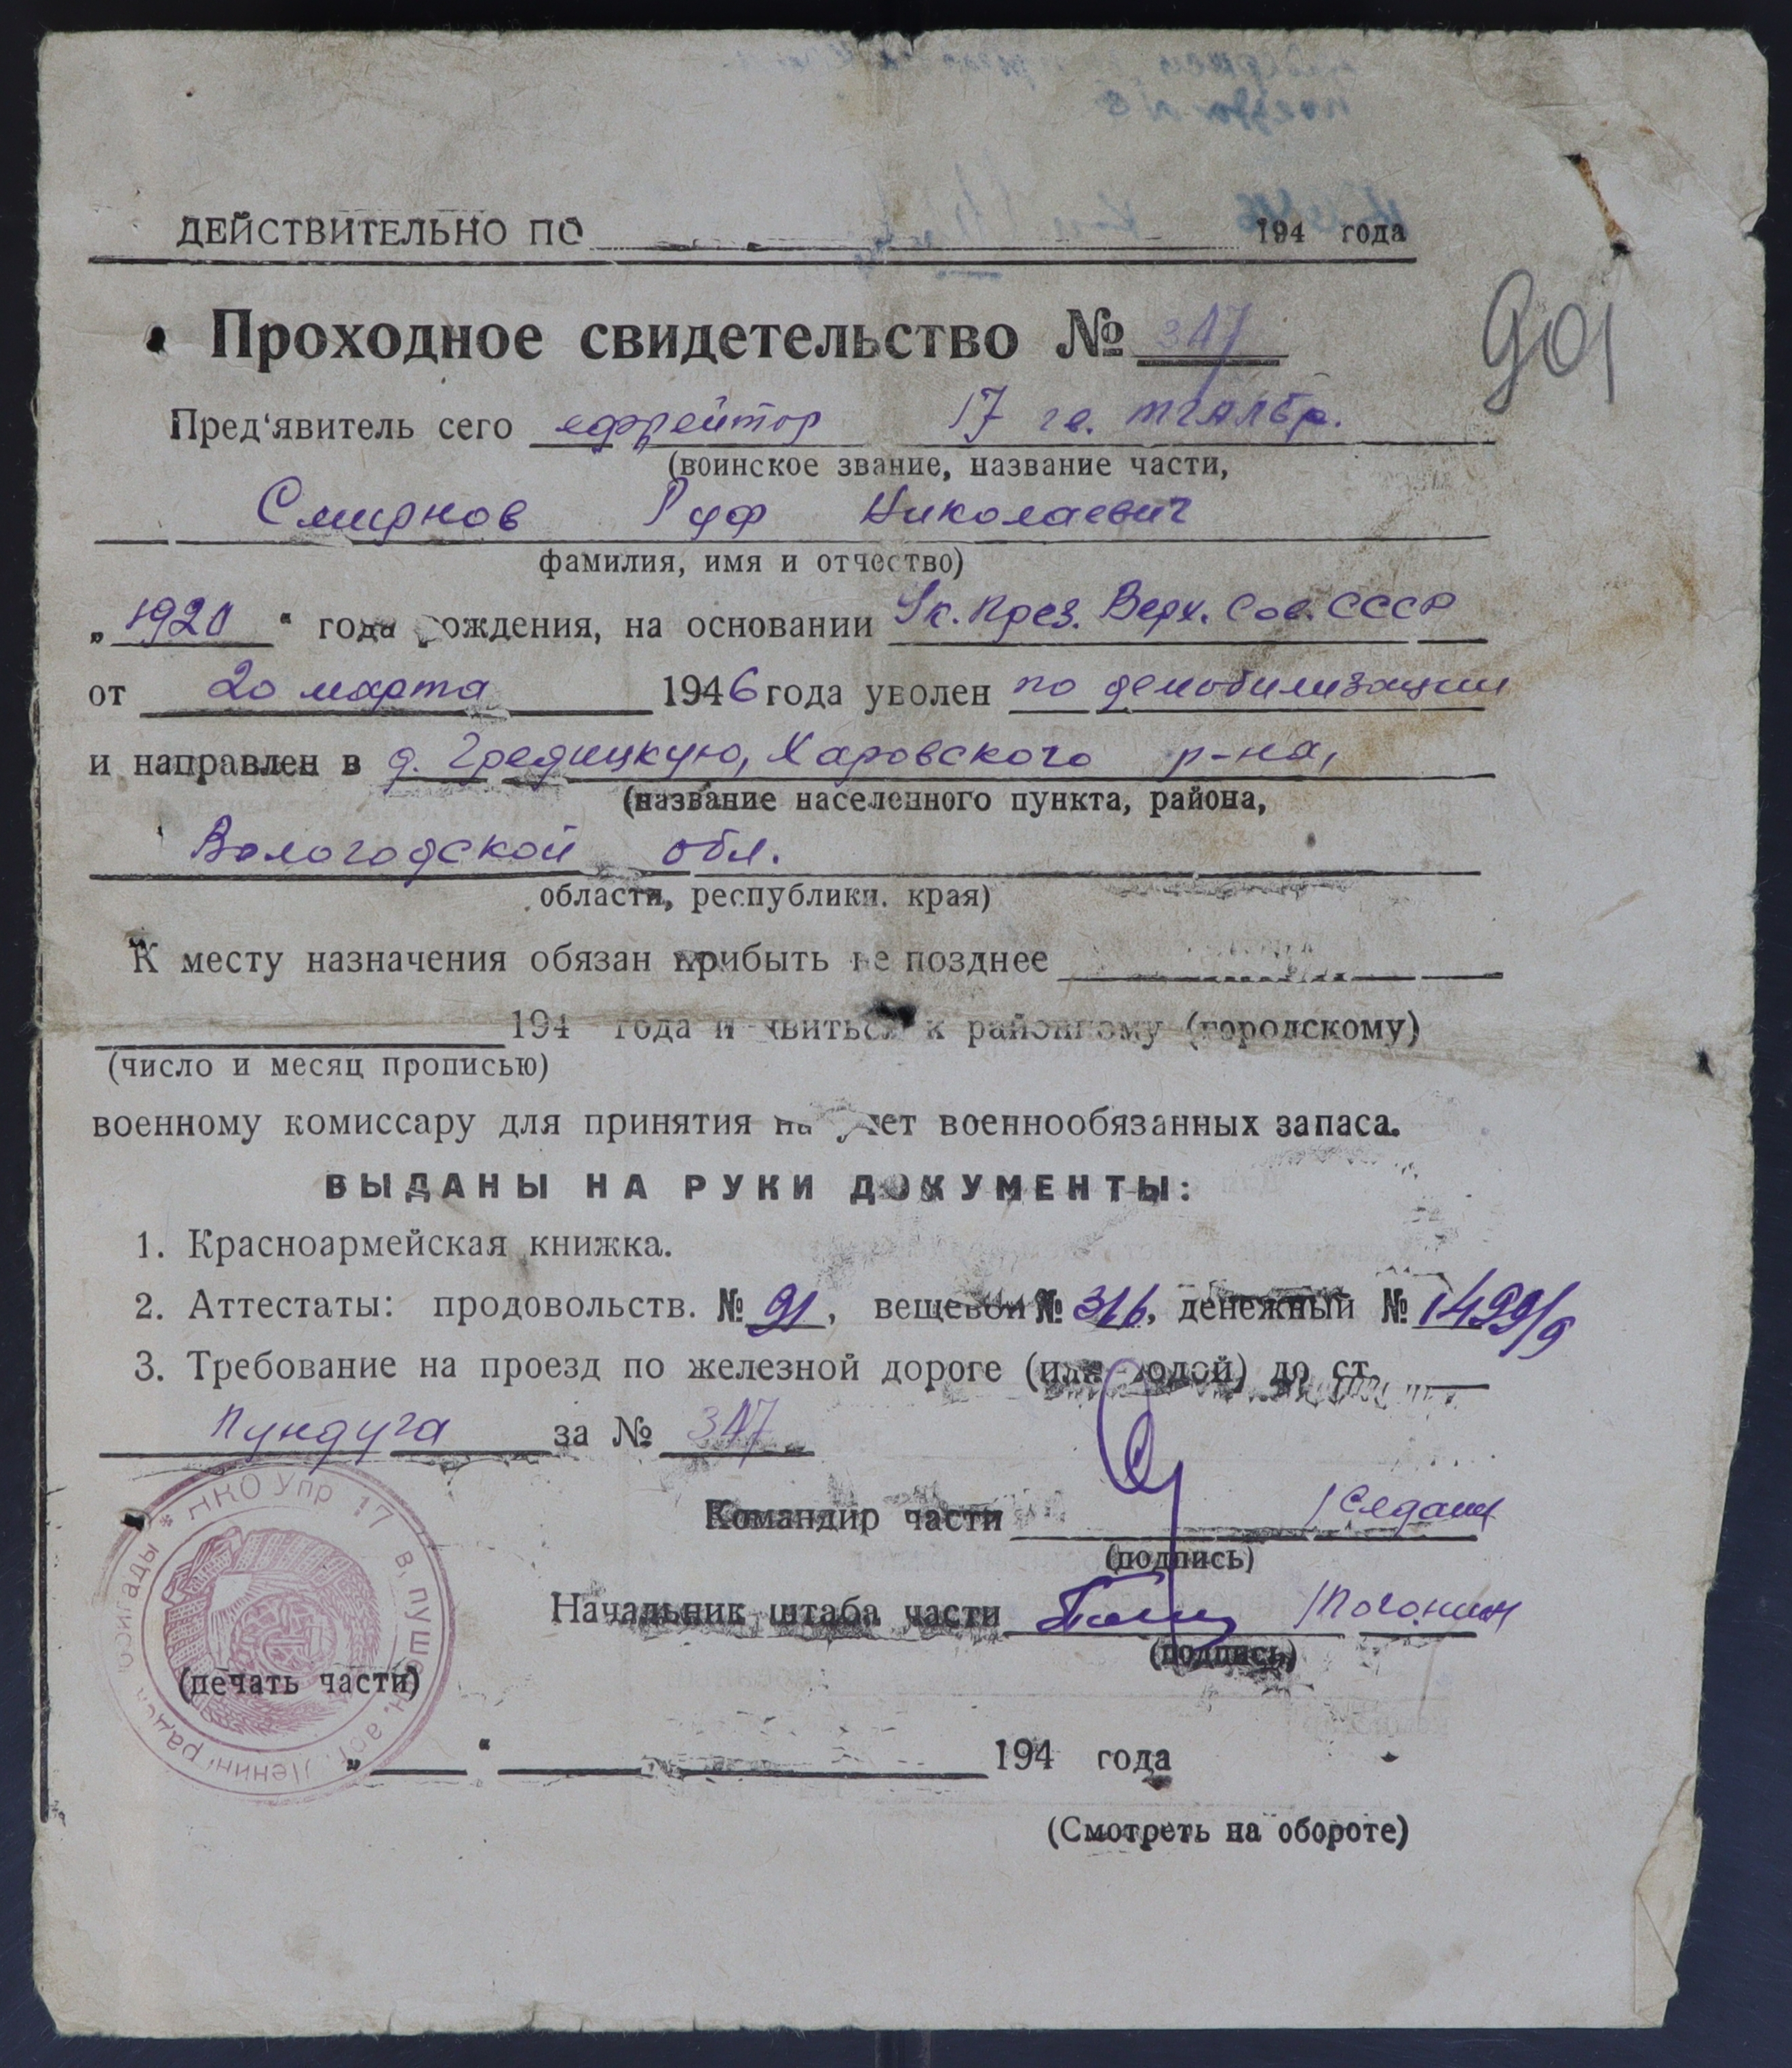 ДЕЙСТВИТЕЛЬНО ПО 194 года
Проходное свидетельство № 347
901
Пред'явитель сего ефрейтор 17 гв.
(воинское звание, название части,
Смирнов Руф Николаевич
фамилия, имя и отчество)
„1920“ года рождения, на основании Ук. През. Верх. Сов. СССР
от 20 марта 1946 года уволен по демобилизации
и направлен в д. Гредицкую, Харовского р-на,
(название населенного пункта, района,
Вологодской обл.
области, республики. края)
К месту назначения обязан прибыть не позднее
194 года и явиться к районному (городскому)
(число и месяц прописью)
военному комиссару для принятия на учет военнообязанных запаса.
ВЫДАНЫ НА РУКИ ДОКУМЕНТЫ:
1. Красноармейская книжка.
2. Аттестаты: продовольств. № 91, вещевой № 316, денежный № 1499/9
3. Требование на проезд по железной дороге (или водой) до ст.
Пундуга за № 347
Командир части /Седаш
(подпись)
Начальник штаба части /Погонин
(подпись)
НКО Упр 17 в. пушеч. арт. Ленинград. бригады
(печать части)
„ “ 194 года
(Смотреть на обороте)